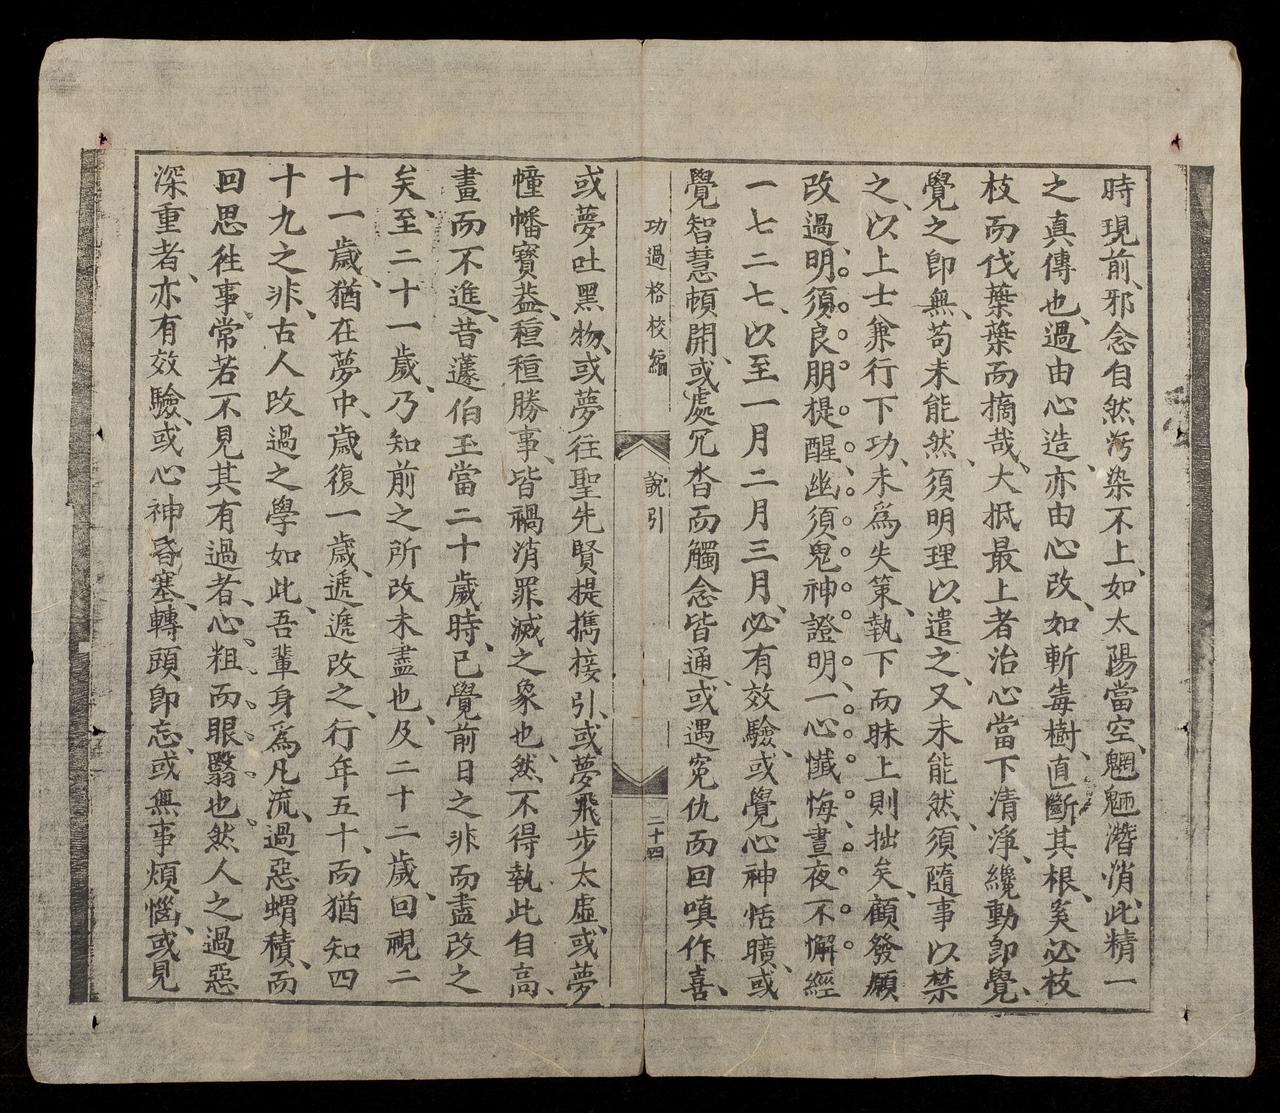 時現前、邪念自然汚染不上、如太陽當空、魍魎潛悄、此精一
之真傳也、過由心造、亦由心改、如斬毒樹、直斷其根、奚必枝
枝而伐、葉葉而摘哉、大抵最上者治心、當下清淨、纔動卽覺、
覺之卽無、苟未能然、須明理以遣之、又未能然、須隨事以禁
之、以上士兼行下功、未爲失策、執下而昧上則拙矣、顧發願
改過、明須良朋提醒、幽須鬼神證明、一心懺悔、晝夜不懈、經
一七二七、以至一月二月三月、必有效驗、或覺心神恬曠、或
覺智慧頓開、或處冗沓而觸念皆通、或遇寃仇而回嗔作喜、
功過格校編 說引 二十四
或夢吐黑物、或夢往聖先賢提攜接引、或夢飛步太虛、或夢
幢幡寶蓋、種種勝事、皆禍消罪滅之象也、然不得執此自高、
畫而不進、昔蘧伯玉當二十歲時、已覺前日之非而盡改之
矣、至二十一歲、乃知前之所改未盡也、及二十二歲、回視二
十一歲、猶在夢中、歲復一歲、遞遞改之、行年五十、而猶知四
十九之非、古人改過之學如此、吾輩身爲凡流、過惡蝟積、而
回思徃事、常若不見其有過者、心粗而眼翳也、然人之過惡
深重者、亦有效驗、或心神昏塞、轉頭卽忘、或無事煩惱、或見